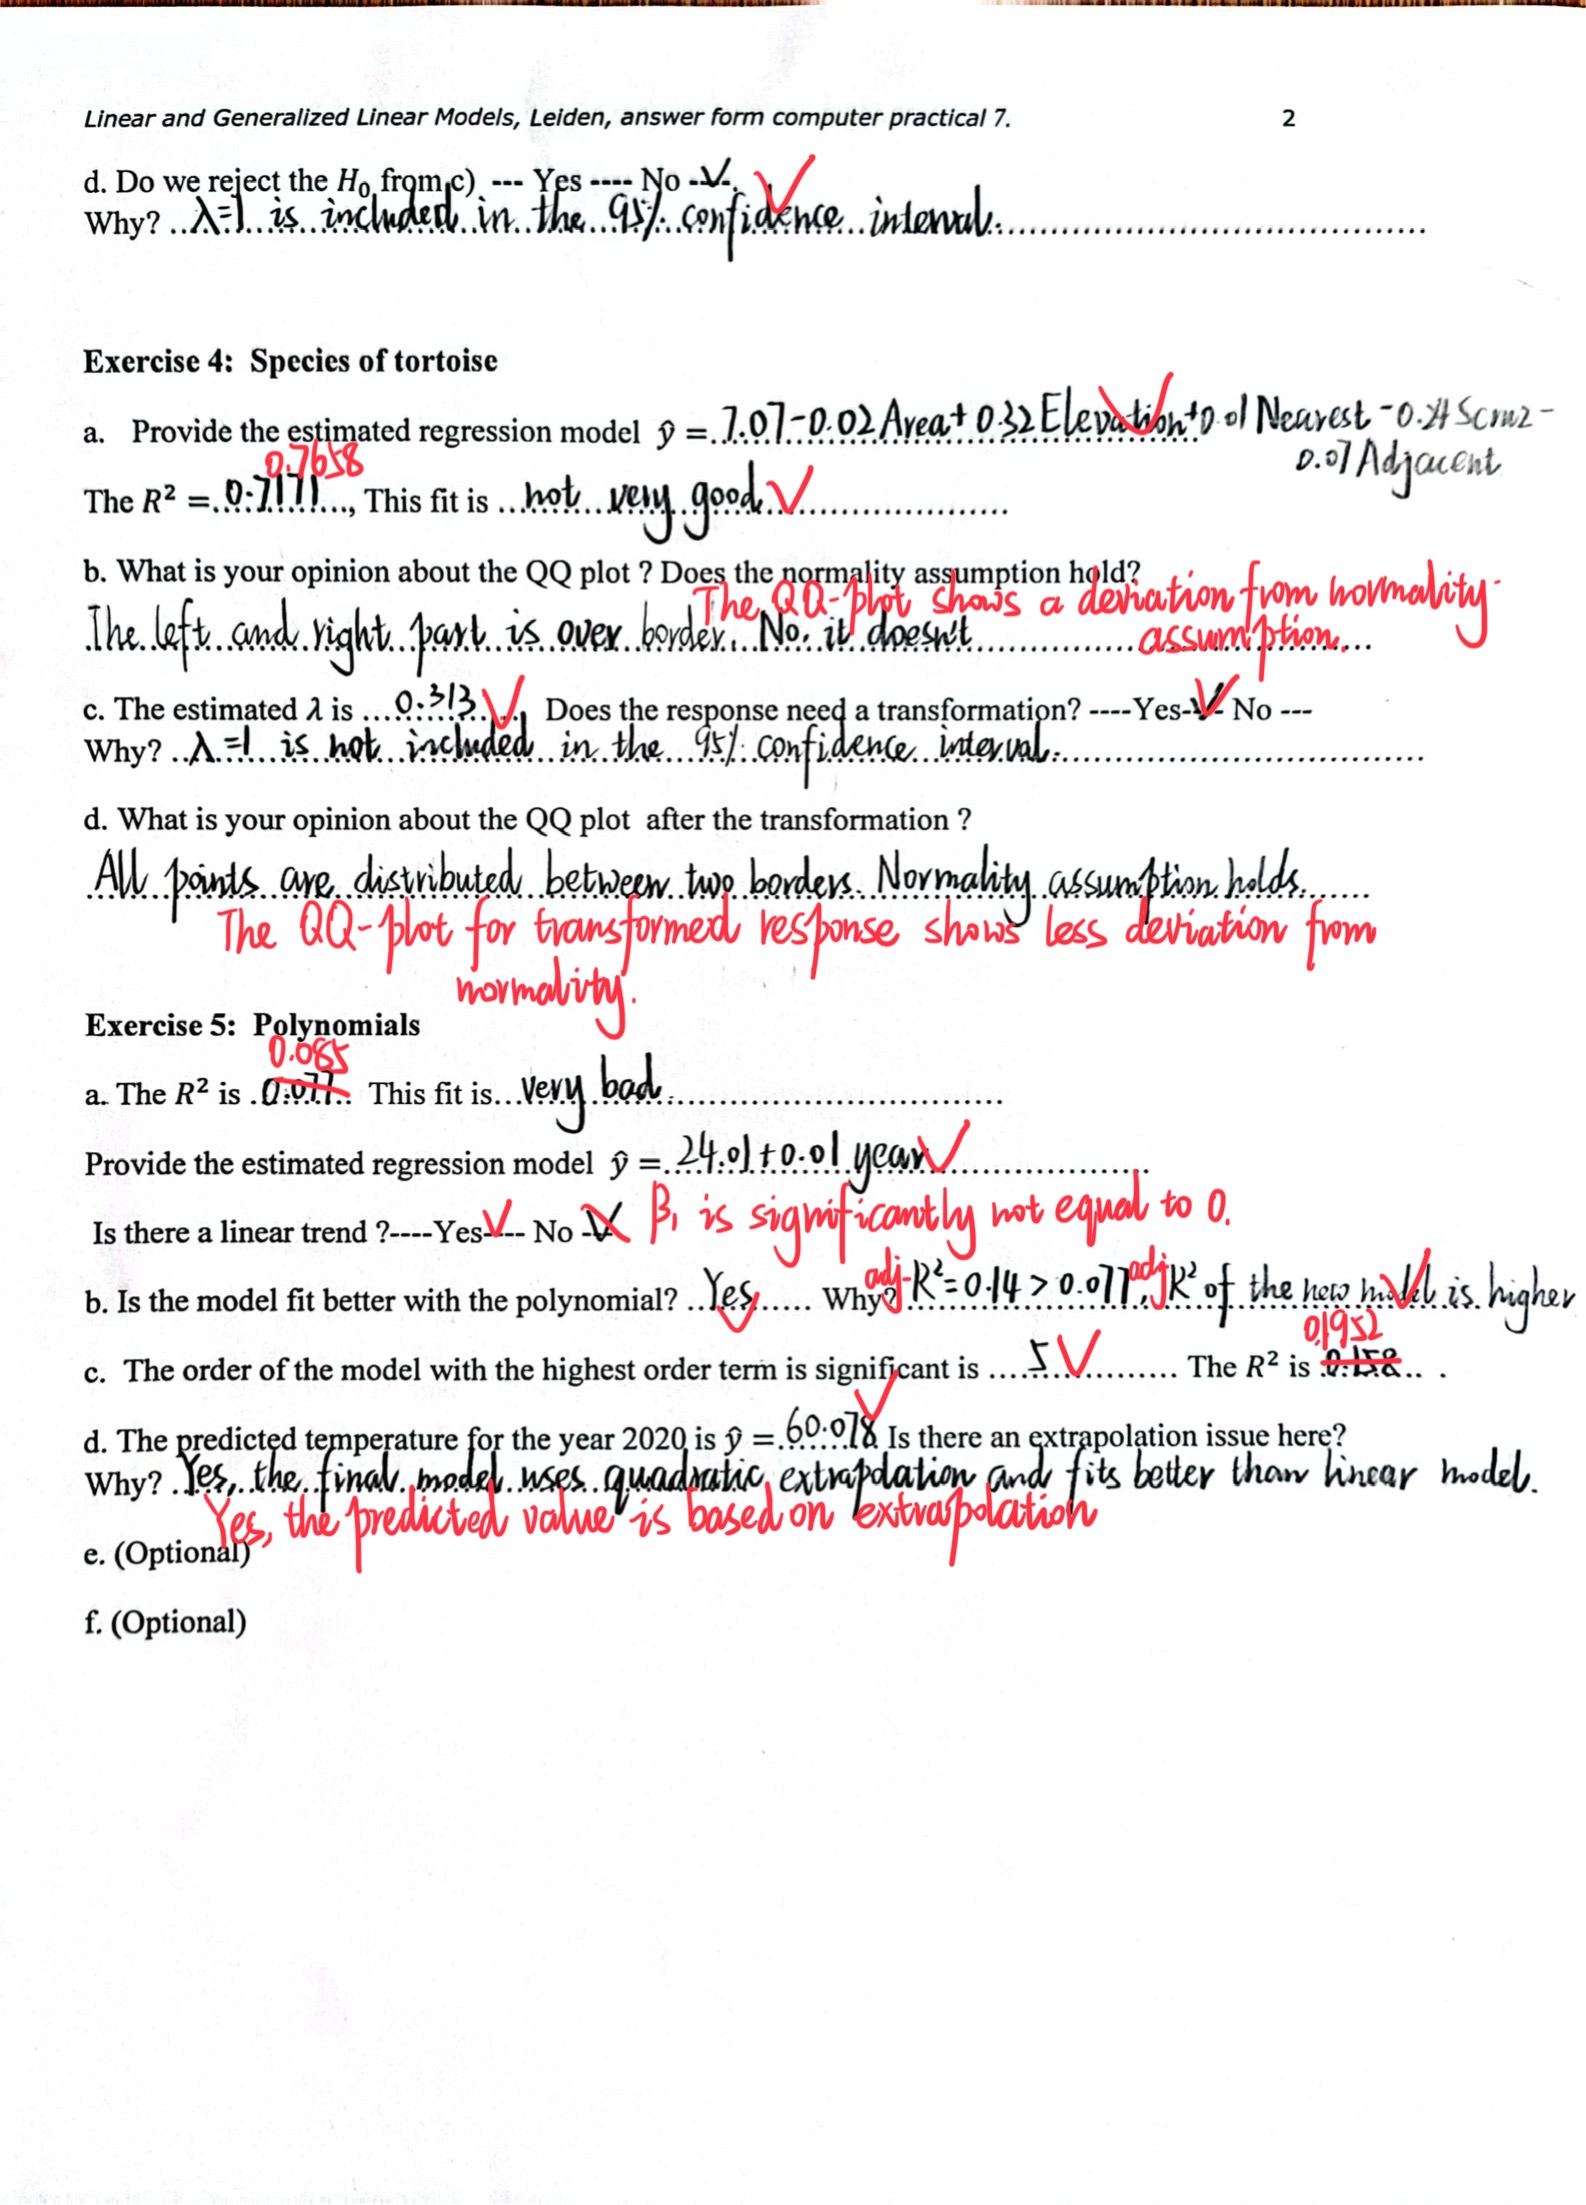 Linear and Generalized Linear Models, Leiden, answer form computer practical 7. 2
d. Do we reject the H0 from c) --- Yes ---- No -V-. ✓
Why? ..λ=1 is included in the 95% confidence interval.
Exercise 4: Species of tortoise
a. Provide the estimated regression model ŷ = 7.07-0.02 Area+ 0.32 Elevation+0.01 Nearest -0.24 Scruz -
0.07 Adjacent
0.7658
The R² = 0.7171, This fit is not very good ✓
b. What is your opinion about the QQ plot ? Does the normality assumption hold?
The QQ-plot shows a deviation from normality
The left and right part is over border. No, it doesn't assumption.
c. The estimated λ is 0.313 ✓, Does the response need a transformation? ----Yes-V- No ---
Why? λ=1 is not included in the 95% confidence interval.
d. What is your opinion about the QQ plot after the transformation ?
All points are distributed between two borders. Normality assumption holds.
The QQ-plot for transformed response shows less deviation from
normality.
Exercise 5: Polynomials
0.085
a. The R² is 0.077 This fit is very bad
Provide the estimated regression model ŷ = 24.01+0.01 year ✓
Is there a linear trend ?----Yes-✓--- No -V β₁ is significantly not equal to 0.
b. Is the model fit better with the polynomial? Yes ✓ Why? adj-R²=0.14 > 0.077, adj R² of the new model is higher
0.1952
c. The order of the model with the highest order term is significant is 5 ✓ The R² is 0.158 .
d. The predicted temperature for the year 2020 is ŷ = 60.078 Is there an extrapolation issue here?
Why? Yes, the final model uses quadratic extrapolation and fits better than linear model.
Yes, the predicted value is based on extrapolation
e. (Optional)
f. (Optional)